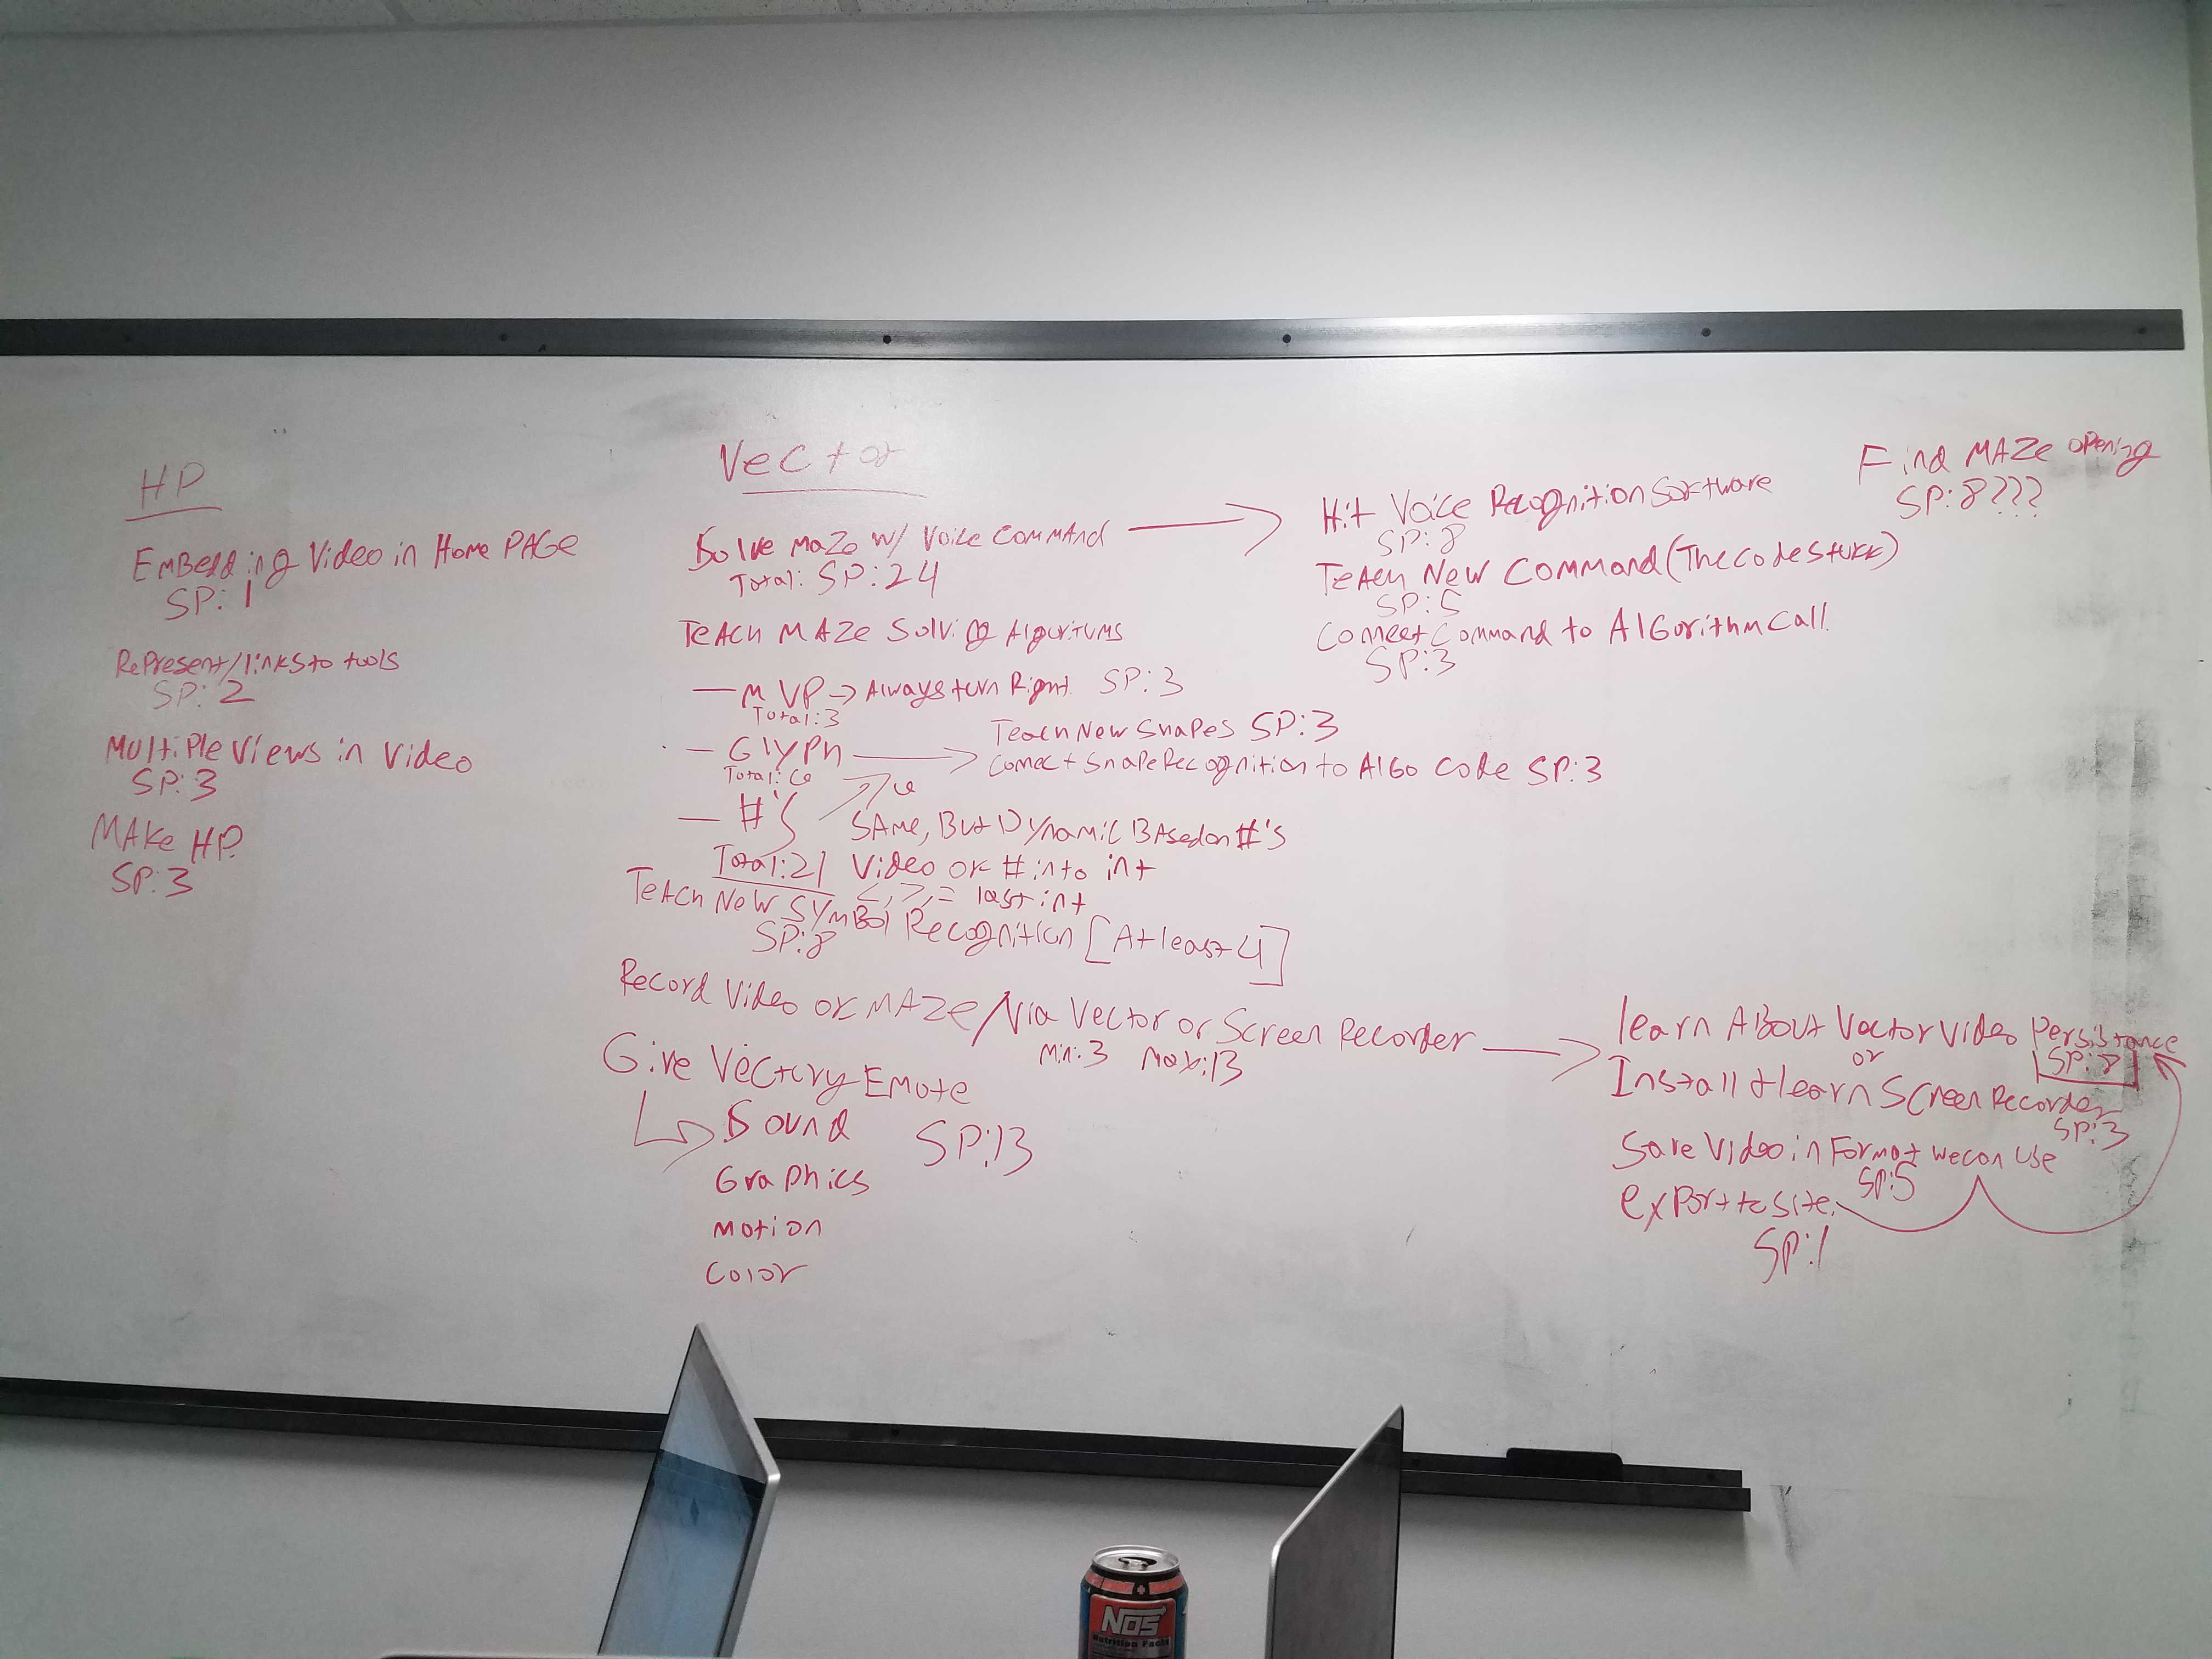 HP
Embedding Video in Home Page
SP: 1
Represent/links to tools
SP: 2
Multiple Views in Video
SP: 3
Make HP
SP: 3
Vector
Solve maze w/ Voice Command
Total: SP: 24
Teach Maze Solving Algoritums
— MVP -> Always turn Right SP: 3
Total: 3
— Glyph
Total: 6
Teach New Shapes SP: 3
Connect Shape Recognition to Algo Code SP: 3
— #'s
Same, But Dynamic Based on #'s
Total: 21 Video of # into int
<, >, = last int
Teach New Symbol Recognition [At least 4]
SP: 8
Record Video of Maze/Via Vector or Screen Recorder
Min: 3 Max: 13
Give Vectory Emote
Sound SP: 13
Graphics
Motion
Color
Hit Voice Recognition Software
SP: 8
Teach New Command (The code stuff)
SP: 5
Connect Command to Algorithm Call
SP: 3
Find Maze opening
SP: 8???
learn About Vector Video Persistance
or SP: 8
Install + learn Screen Recorder
SP: 3
Save Video in Format we can use
SP: 5
export to site
SP: 1
NOS
Nutrition Facts